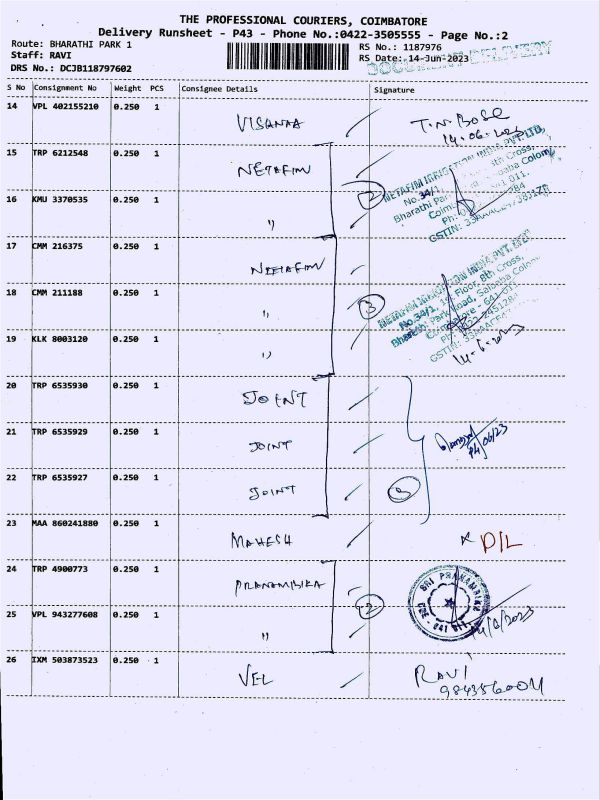 THE PROFESSIONAL COURIERS, COIMBATORE
Delivery Runsheet - P43 - Phone No.:0422-3505555 - Page No.:2
Route: BHARATHI PARK 1
RS No.: 1187976
Staff: RAVI
RS Date: 14-Jun-2023
DRS No.: DCJB118797602
DOCUMENT DELIVERY
S No Consignment No Weight PCS Consignee Details Signature
14 VPL 402155210 0.250 1 VISANAA T.N. BOSE
14-06-2023
15 TRP 6212548 0.250 1 NETAFIM
NETAFIM IRRIGATION INDIA PVT. LTD.
No.34/1, 8th Cross,
Bharathi Park Saibaba Colony
16 KMU 3370535 0.250 1 " 2
17 CMM 216375 0.250 1 NETAFIM
NETAFIM IRRIGATION INDIA PVT. LTD.
No.34/1, Floor, 8th Cross,
Bharathi Park Road, Saibaba Colony
18 CMM 211188 0.250 1 " 3
Coimbatore - 641 011
19 KLK 8003120 0.250 1 "
14-6-2023
20 TRP 6535930 0.250 1 JOINT
21 TRP 6535929 0.250 1 JOINT
14/06/23
22 TRP 6535927 0.250 1 JOINT 3
23 MAA 860241880 0.250 1 MAHESH D/L
24 TRP 4900773 0.250 1 PRANAMBIKA
SRI PRANAMBIKA
CBE - 641 011
2
25 VPL 943277608 0.250 1 "
26 IXM 503873523 0.250 1 VEL RAVI